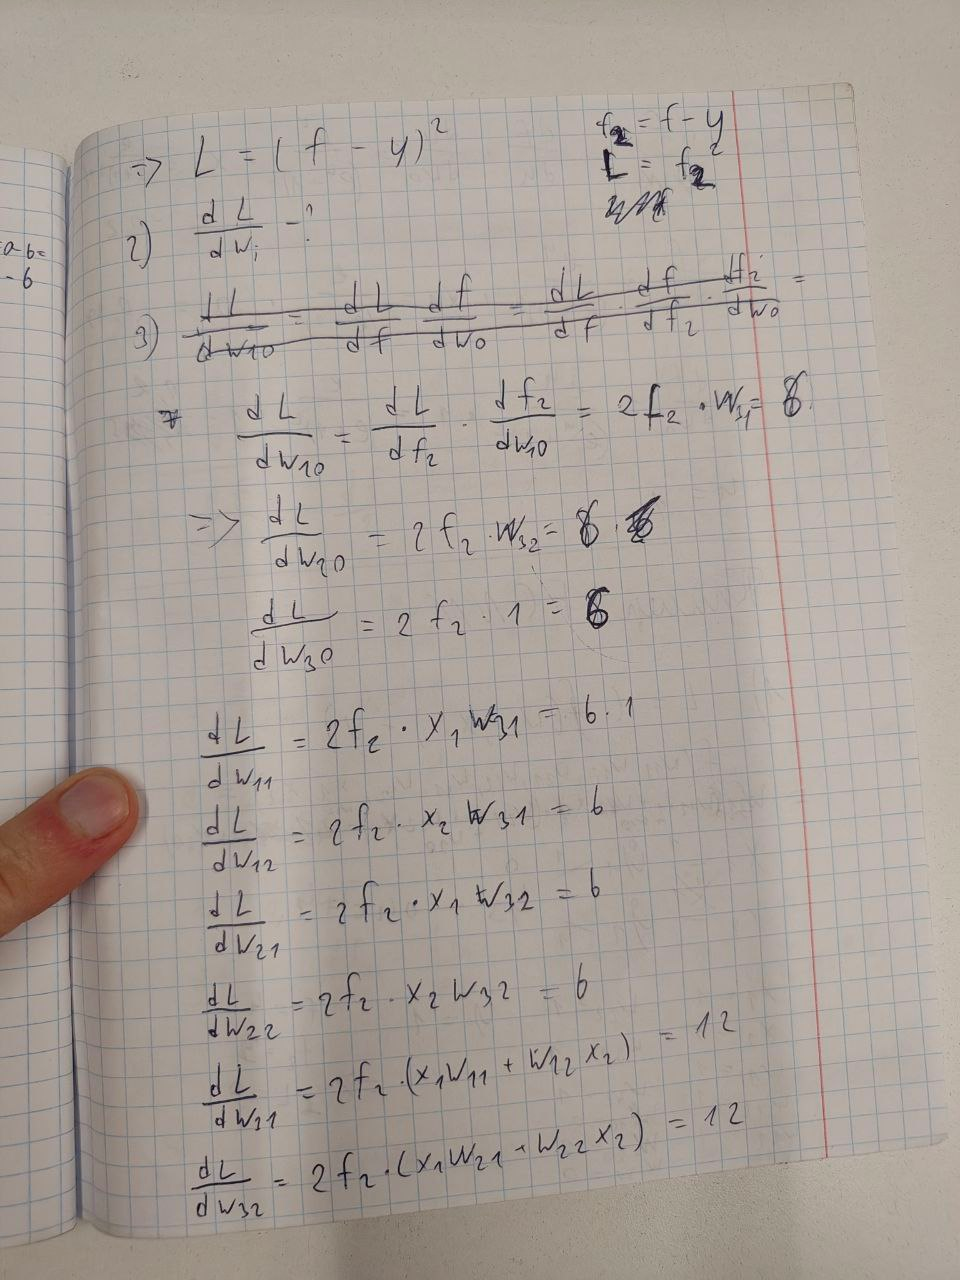 => L = (f - y)²
f₂ = f - y
L = f₂²
2) dL/dwᵢ - ?
a-b=
- 6
3) dL/dw₁₀ = dL/df df/dw₀ = dL/df · df/df₂ · df₂/dw₀ =
dL/dw₁₀ = dL/df₂ · df₂/dw₁₀ = 2f₂ · w₃₁ = 6
=> dL/dw₂₀ = 2f₂ · w₃₂ = 6
dL/dw₃₀ = 2f₂ · 1 = 6
dL/dw₁₁ = 2f₂ · x₁ w₃₁ = 6 · 1
dL/dw₁₂ = 2f₂ · x₂ w₃₁ = 6
dL/dw₂₁ = 2f₂ · x₁ w₃₂ = 6
dL/dw₂₂ = 2f₂ · x₂ w₃₂ = 6
dL/dw₃₁ = 2f₂ · (x₁w₁₁ + w₁₂x₂) = 12
dL/dw₃₂ = 2f₂ · (x₁w₂₁ + w₂₂x₂) = 12